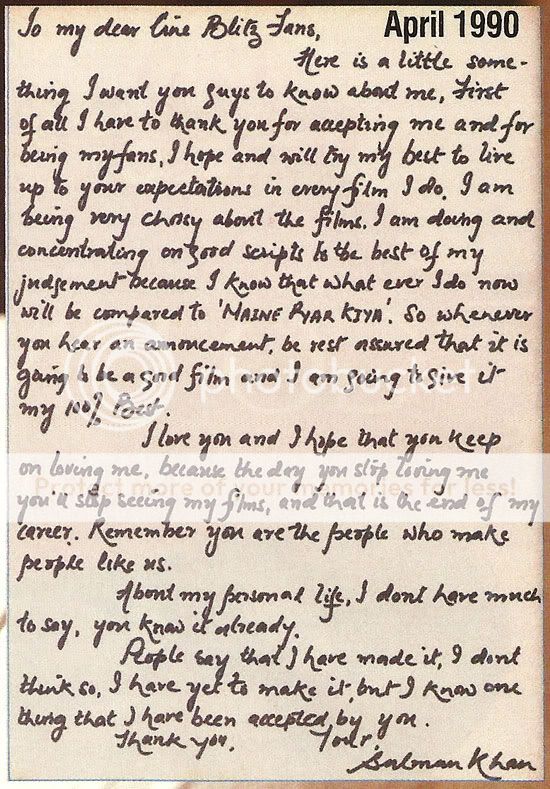 April 1990
To my dear Cine Blitz Fans,
Here is a little some-
thing I want you guys to know about me, First
of all I have to thank you for accepting me and for
being my fans, I hope and will try my best to live
up to your expectations in every film I do, I am
being very choosy about the films. I am doing and
concentrating on good scripts to the best of my
judgement because I know that what ever I do now
will be compared to 'MAINE PYAR KIYA'. So whenever
you hear an announcement, be rest assured that it is
going to be a good film and I am going to give it
my 100% Best.
I love you and I hope that you keep
on loving me, because the day you stop loving me
you'd stop seeing my films, and that is the end of my
career. Remember you are the people who make
people like us.
About my personal life, I dont have much
to say, you know it already.
People say that I have made it, I dont
think so, I have yet to make it, but I know one
thing that I have been accepted by you.
Thank you. Your,
Salman Khan
photobucket
Protect more of your memories for less!